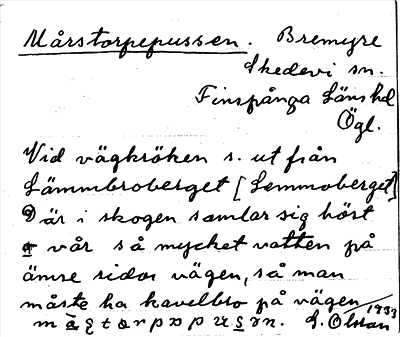 Mårstorpepussen. Bremyre
Skedevi sn.
Finspånga Läns hd
Ögl.
Vid vägkröken s. ut från
Lämmbroberget [Lemmoberget]
där i skogen samlar sig höst
o vår så mycket vatten på
ömse sidor vägen, så man
måste ha kavelbro på vägen
1933
S. Olsson